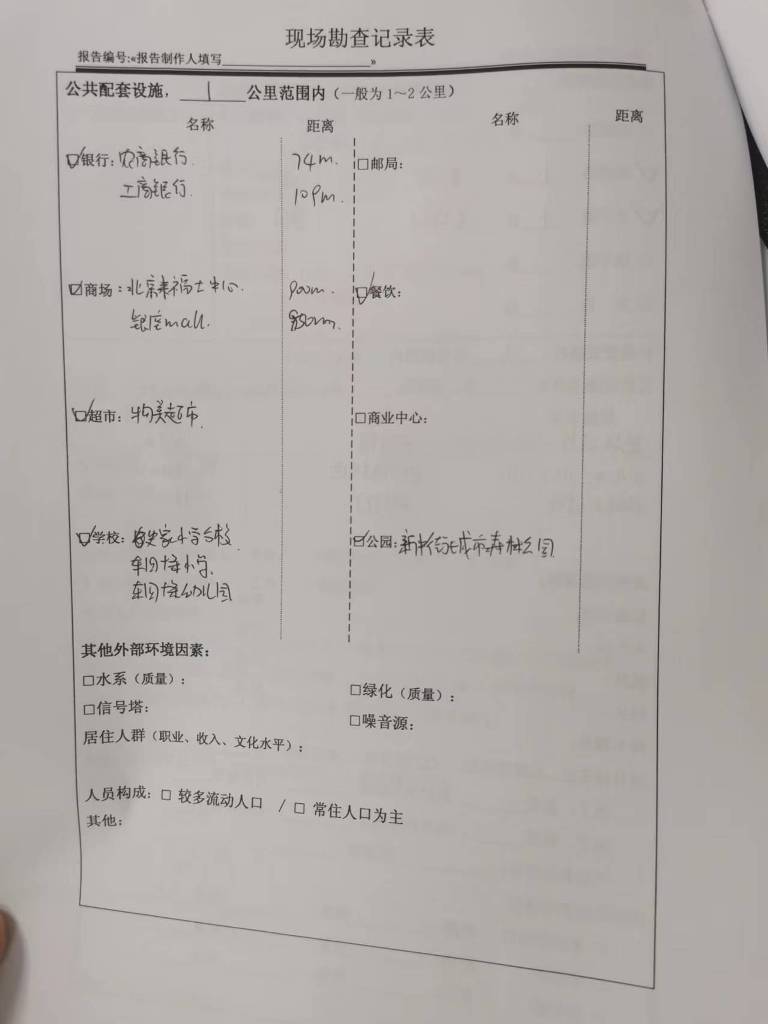 现场勘查记录表
报告编号:«报告制作人填写____________________»
公共配套设施，___1___公里范围内（一般为 1～2 公里）
名称 距离 名称 距离
☑银行：农商银行 74m. □邮局：
工商银行. 109m.
☑商场：北京来福士中心. 900m. ☑餐饮：
银座mall. 950m.
☑超市：物美超市 □商业中心：
☑学校：史家小学分校 ☑公园：新中街城市森林公园
小学.
幼儿园
其他外部环境因素：
□水系（质量）： □绿化（质量）：
□信号塔： □噪音源：
居住人群（职业、收入、文化水平）：
人员构成：□ 较多流动人口 / □ 常住人口为主
其他：